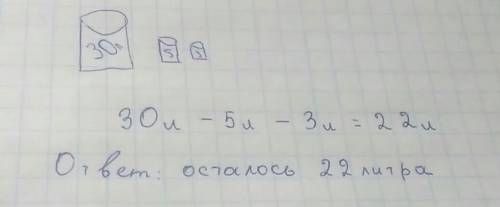 30л 5 3
30л - 5л - 3л = 22л
Ответ: осталось 22 литра